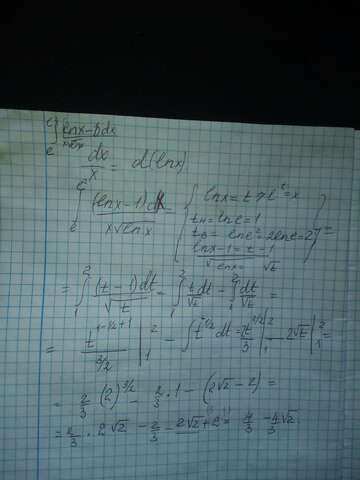 ∫_e^{e²} (lnx-1)dx / x√lnx
dx/x = d(lnx)
∫_e^{e²} (lnx-1)dx / x√lnx = { lnx=t ⇒ e^t=x
t_н=lne=1
t_в=lne²=2lne=2
lnx-1 / √lnx = t-1 / √t } =
= ∫_1^2 (t-1)dt / √t = ∫_1^2 t dt/√t - ∫_1^2 dt/√t =
= t^{1-1/2+1} / 3/2 |_1^2 - ∫ t^{-1/2} dt = t^{3/2}/3 |_1^2 - 2√t |_1^2 =
= 2/3 (2)^{3/2} - 2/3 · 1 - (2√2 - 2) =
= 2/3 · 2√2 - 2/3 - 2√2 + 2 = 4/3 - 4/3 √2